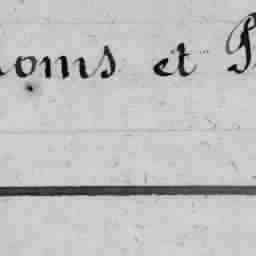 noms et P